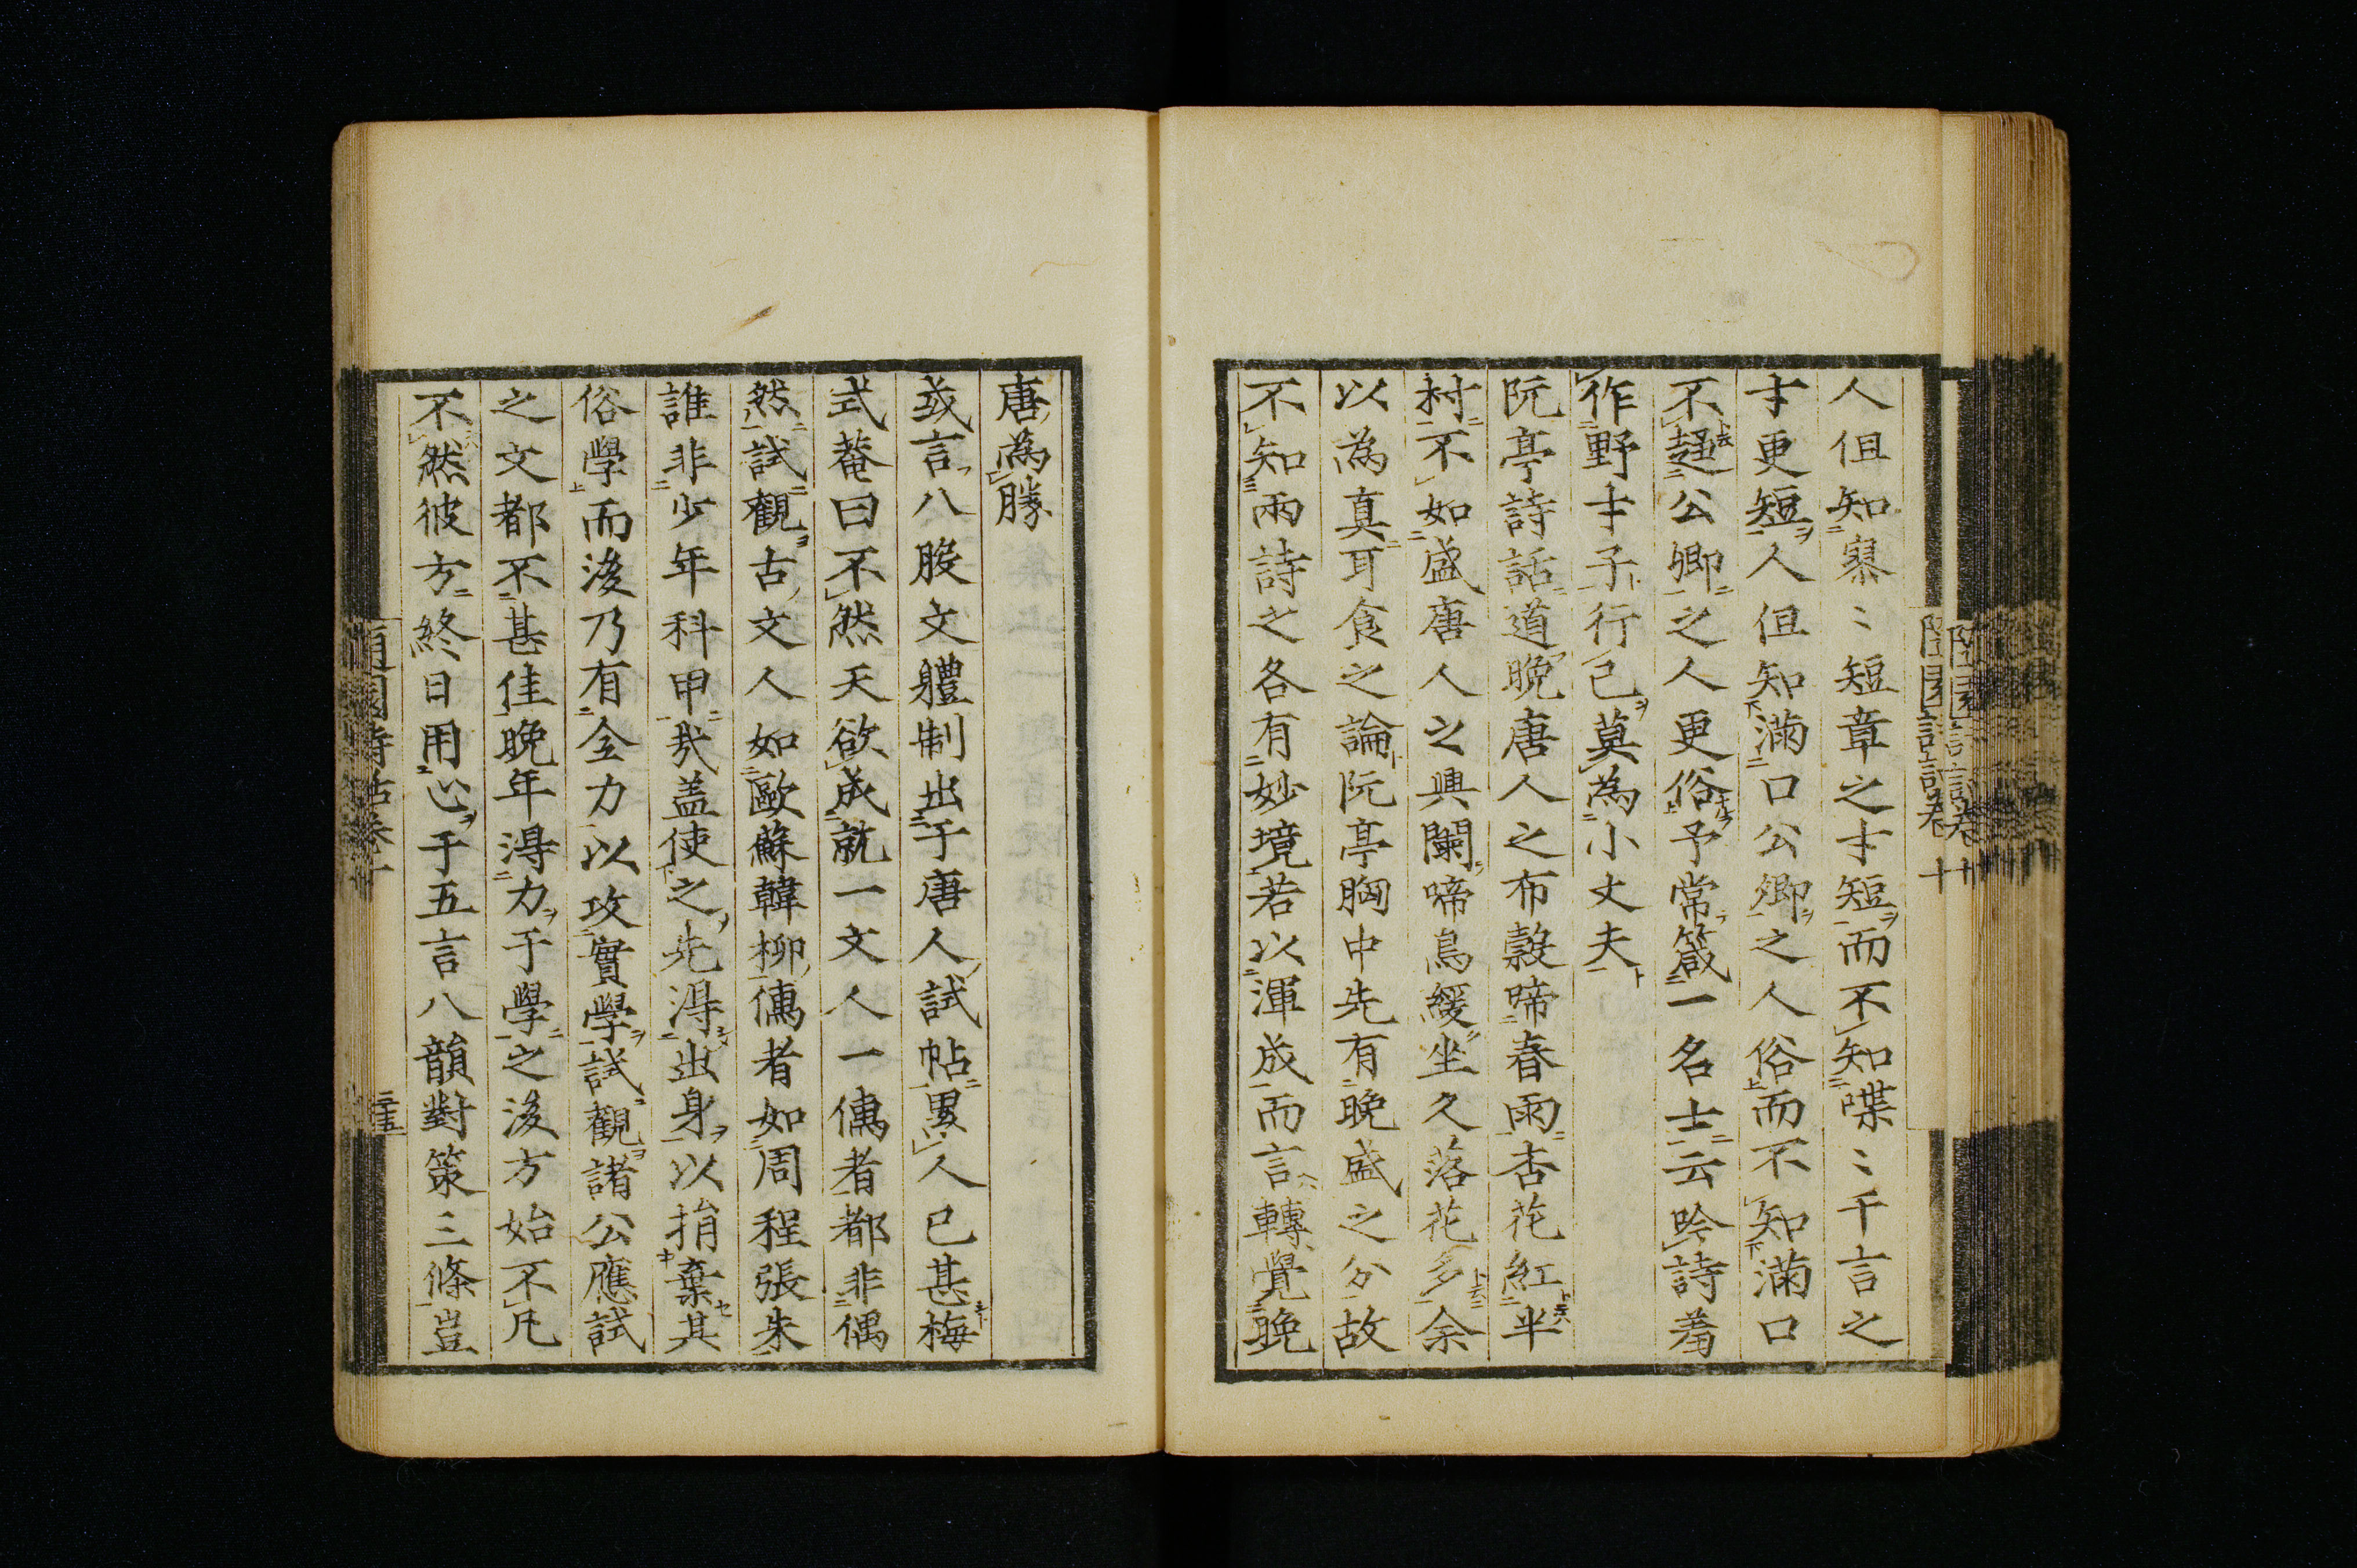 人但知寥〻短章之才短而不知喋〻千言之
才更短人但知滿口公卿之人俗而不知滿口
不趨公卿之人更俗予常箴一名士云吟詩羞
作野才子行己莫為小丈夫
阮亭詩話道晚唐人之布穀啼春雨杏花紅半
村不如盛唐人之興闌啼鳥緩坐久落花多余
以為真耳食之論阮亭胸中先有晚盛之分故
不知兩詩之各有妙境若以渾成而言轉覺晚
唐為勝
或言八股文軆制出于唐人試帖累人已甚梅
式菴曰不然天欲成就一文人一儒者都非偶
然試觀古文人如歐蘇韓柳儒者如周程張朱
誰非少年科甲哉盖使之先得出身以捐棄其
俗學而後乃有全力以攻實學試觀諸公應試
之文都不甚佳晚年得力于學之後方始不凡
不然彼方終日用心于五言八韻對策三條豈
隨園詩話卷十